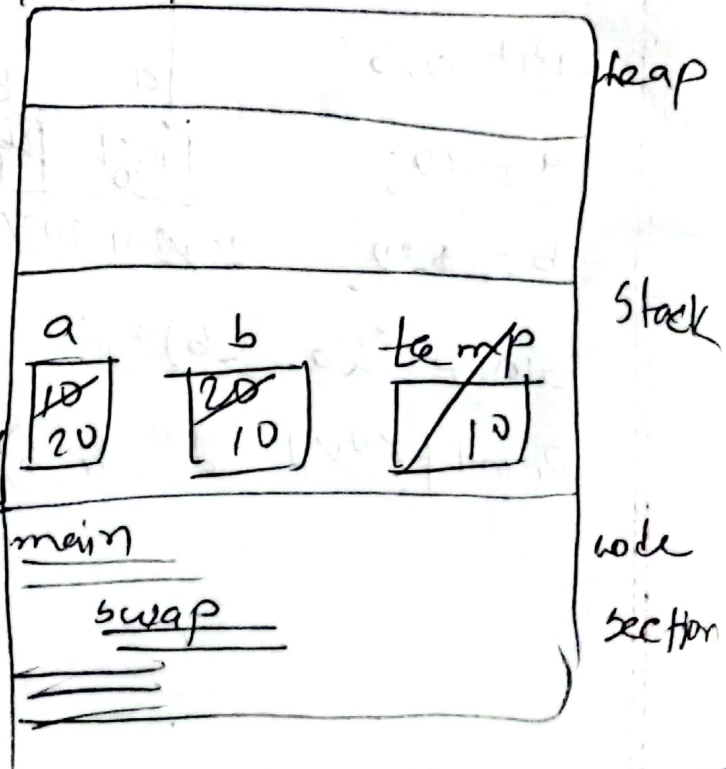 Heap
Stack
a b temp
10 20
20 10 10
main
code
swap
section